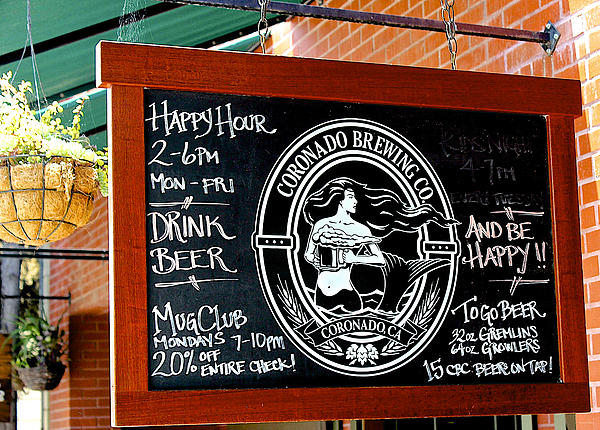 HAPPY HOUR
2-6PM
MON - FRI
DRINK
BEER
MUG CLUB
MONDAYS 7-10PM
20% OFF
ENTIRE CHECK!
CORONADO BREWING CO.
CORONADO, CA
KIDS NIGHT
4-7PM
AND BE
HAPPY!!
TO GO BEER
32oz GREMLINS
64oz GROWLERS
15 CBC BEERS ON TAP!